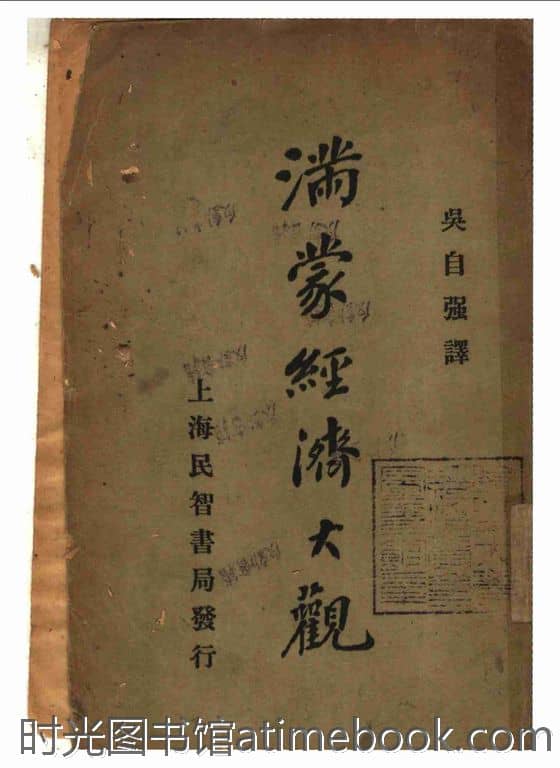 吳自强譯
滿蒙經濟大觀
上海民智書局發行
时光图书馆atimebook.com